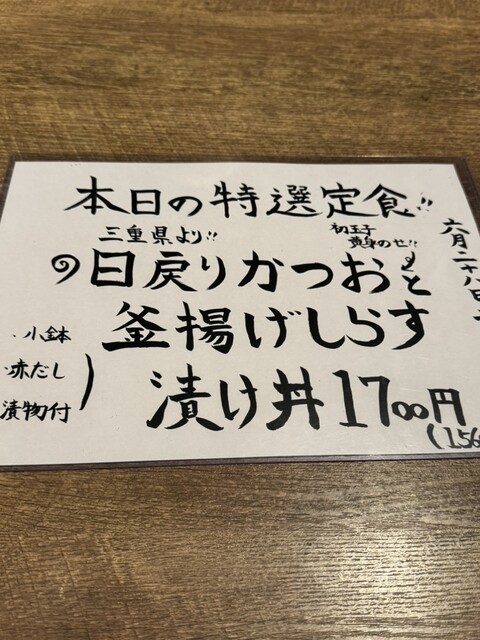 本日の特選定食!!
三重県より!!
初玉子
黄身のせ!!
日戻りかつおと
釜揚げしらす
漬け丼1700円
(156
小鉢
赤だし
漬物付
六月二十八日